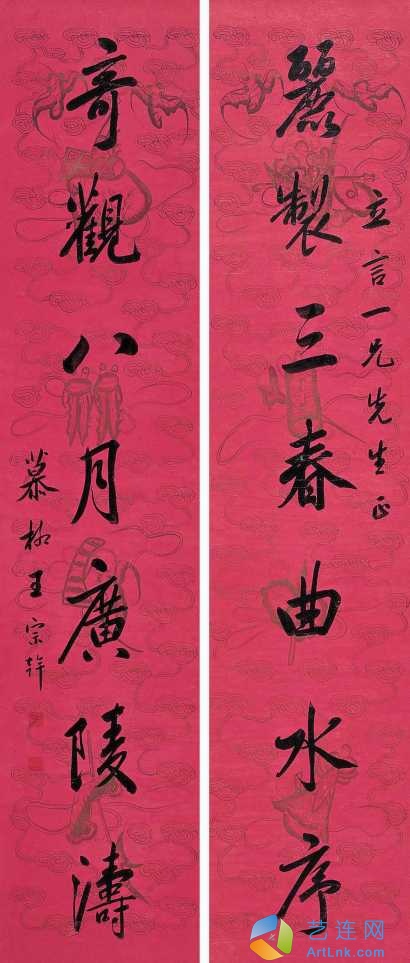 立言一兄先生正
麗製三春曲水序
奇觀八月廣陵濤
慕樹王宗幹
艺连网
ArtLnk.com